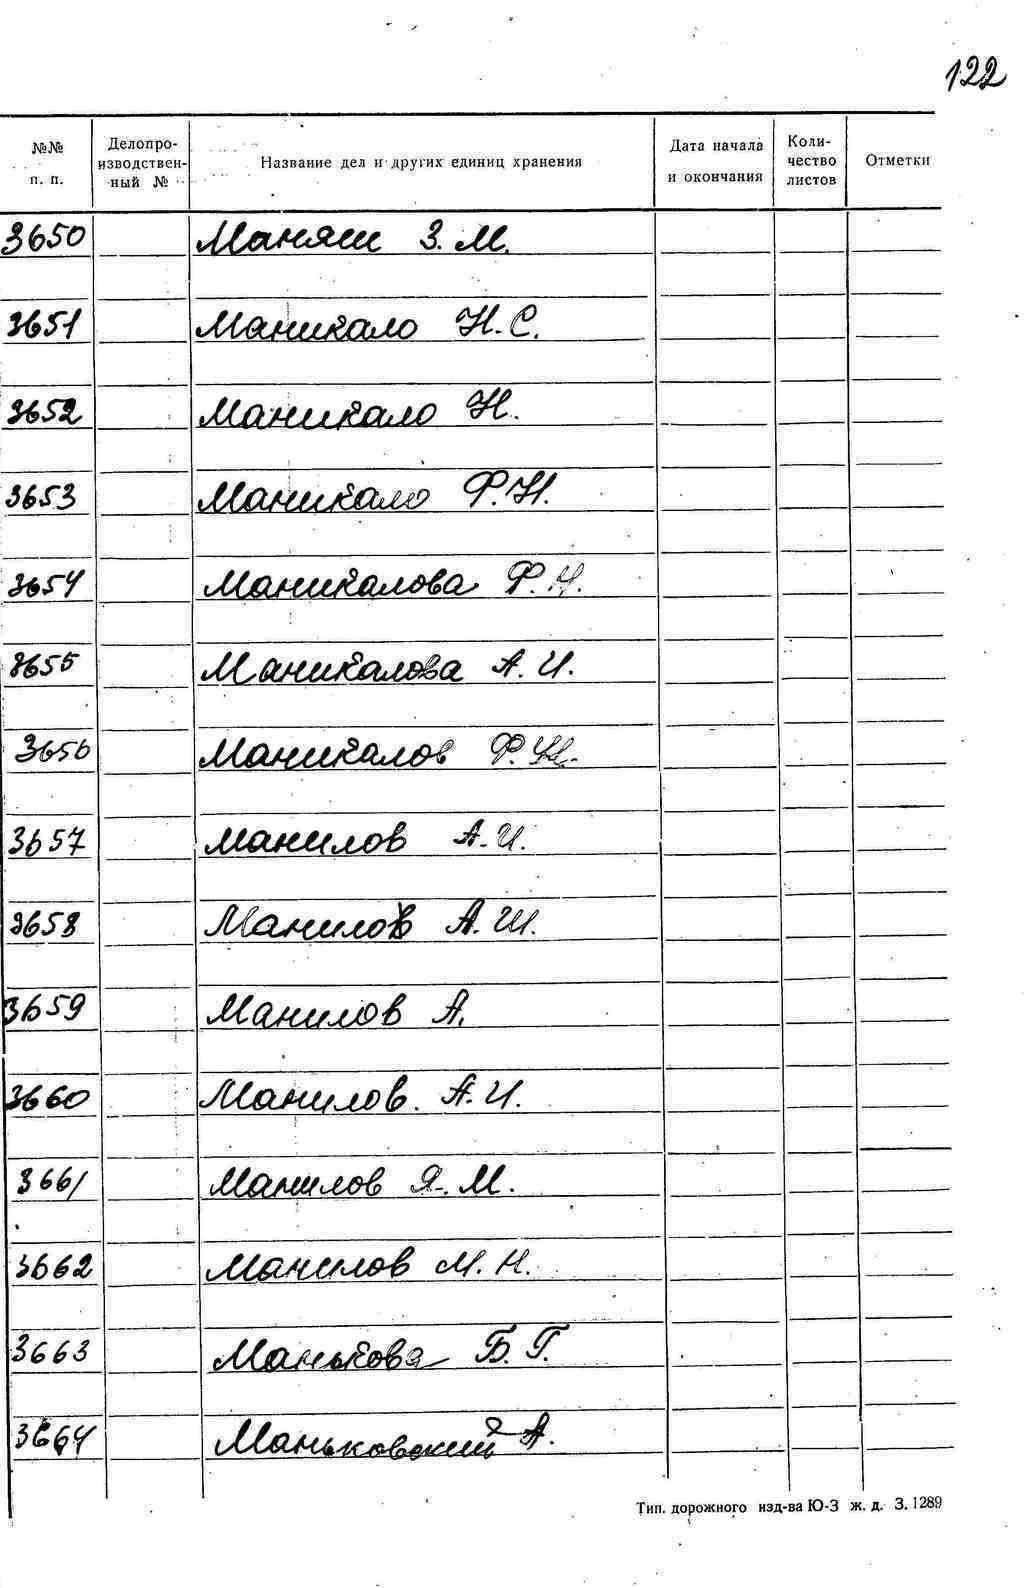 122
№№ п. п. Делопроизводственный № Название дел и других единиц хранения Дата начала и окончания Количество листов Отметки
3650 Маняш З. М.
3651 Маникало Н. С.
3652 Маникало Н.
3653 Маникало Ф. Н.
3654 Маникалова Ф. Н.
3655 Маникалова А. И.
3656 Маникалов Ф.
3657 Манилов А. И.
3658 Манилов А. Ш.
3659 Манилов А.
3660 Манилов. А. И.
3661 Манилов Я. М.
3662 Манилов М. Н.
3663 Манькова Б. Г.
3664 Маньковский А.
Тип. дорожного изд-ва Ю-З ж. д. З. 1289